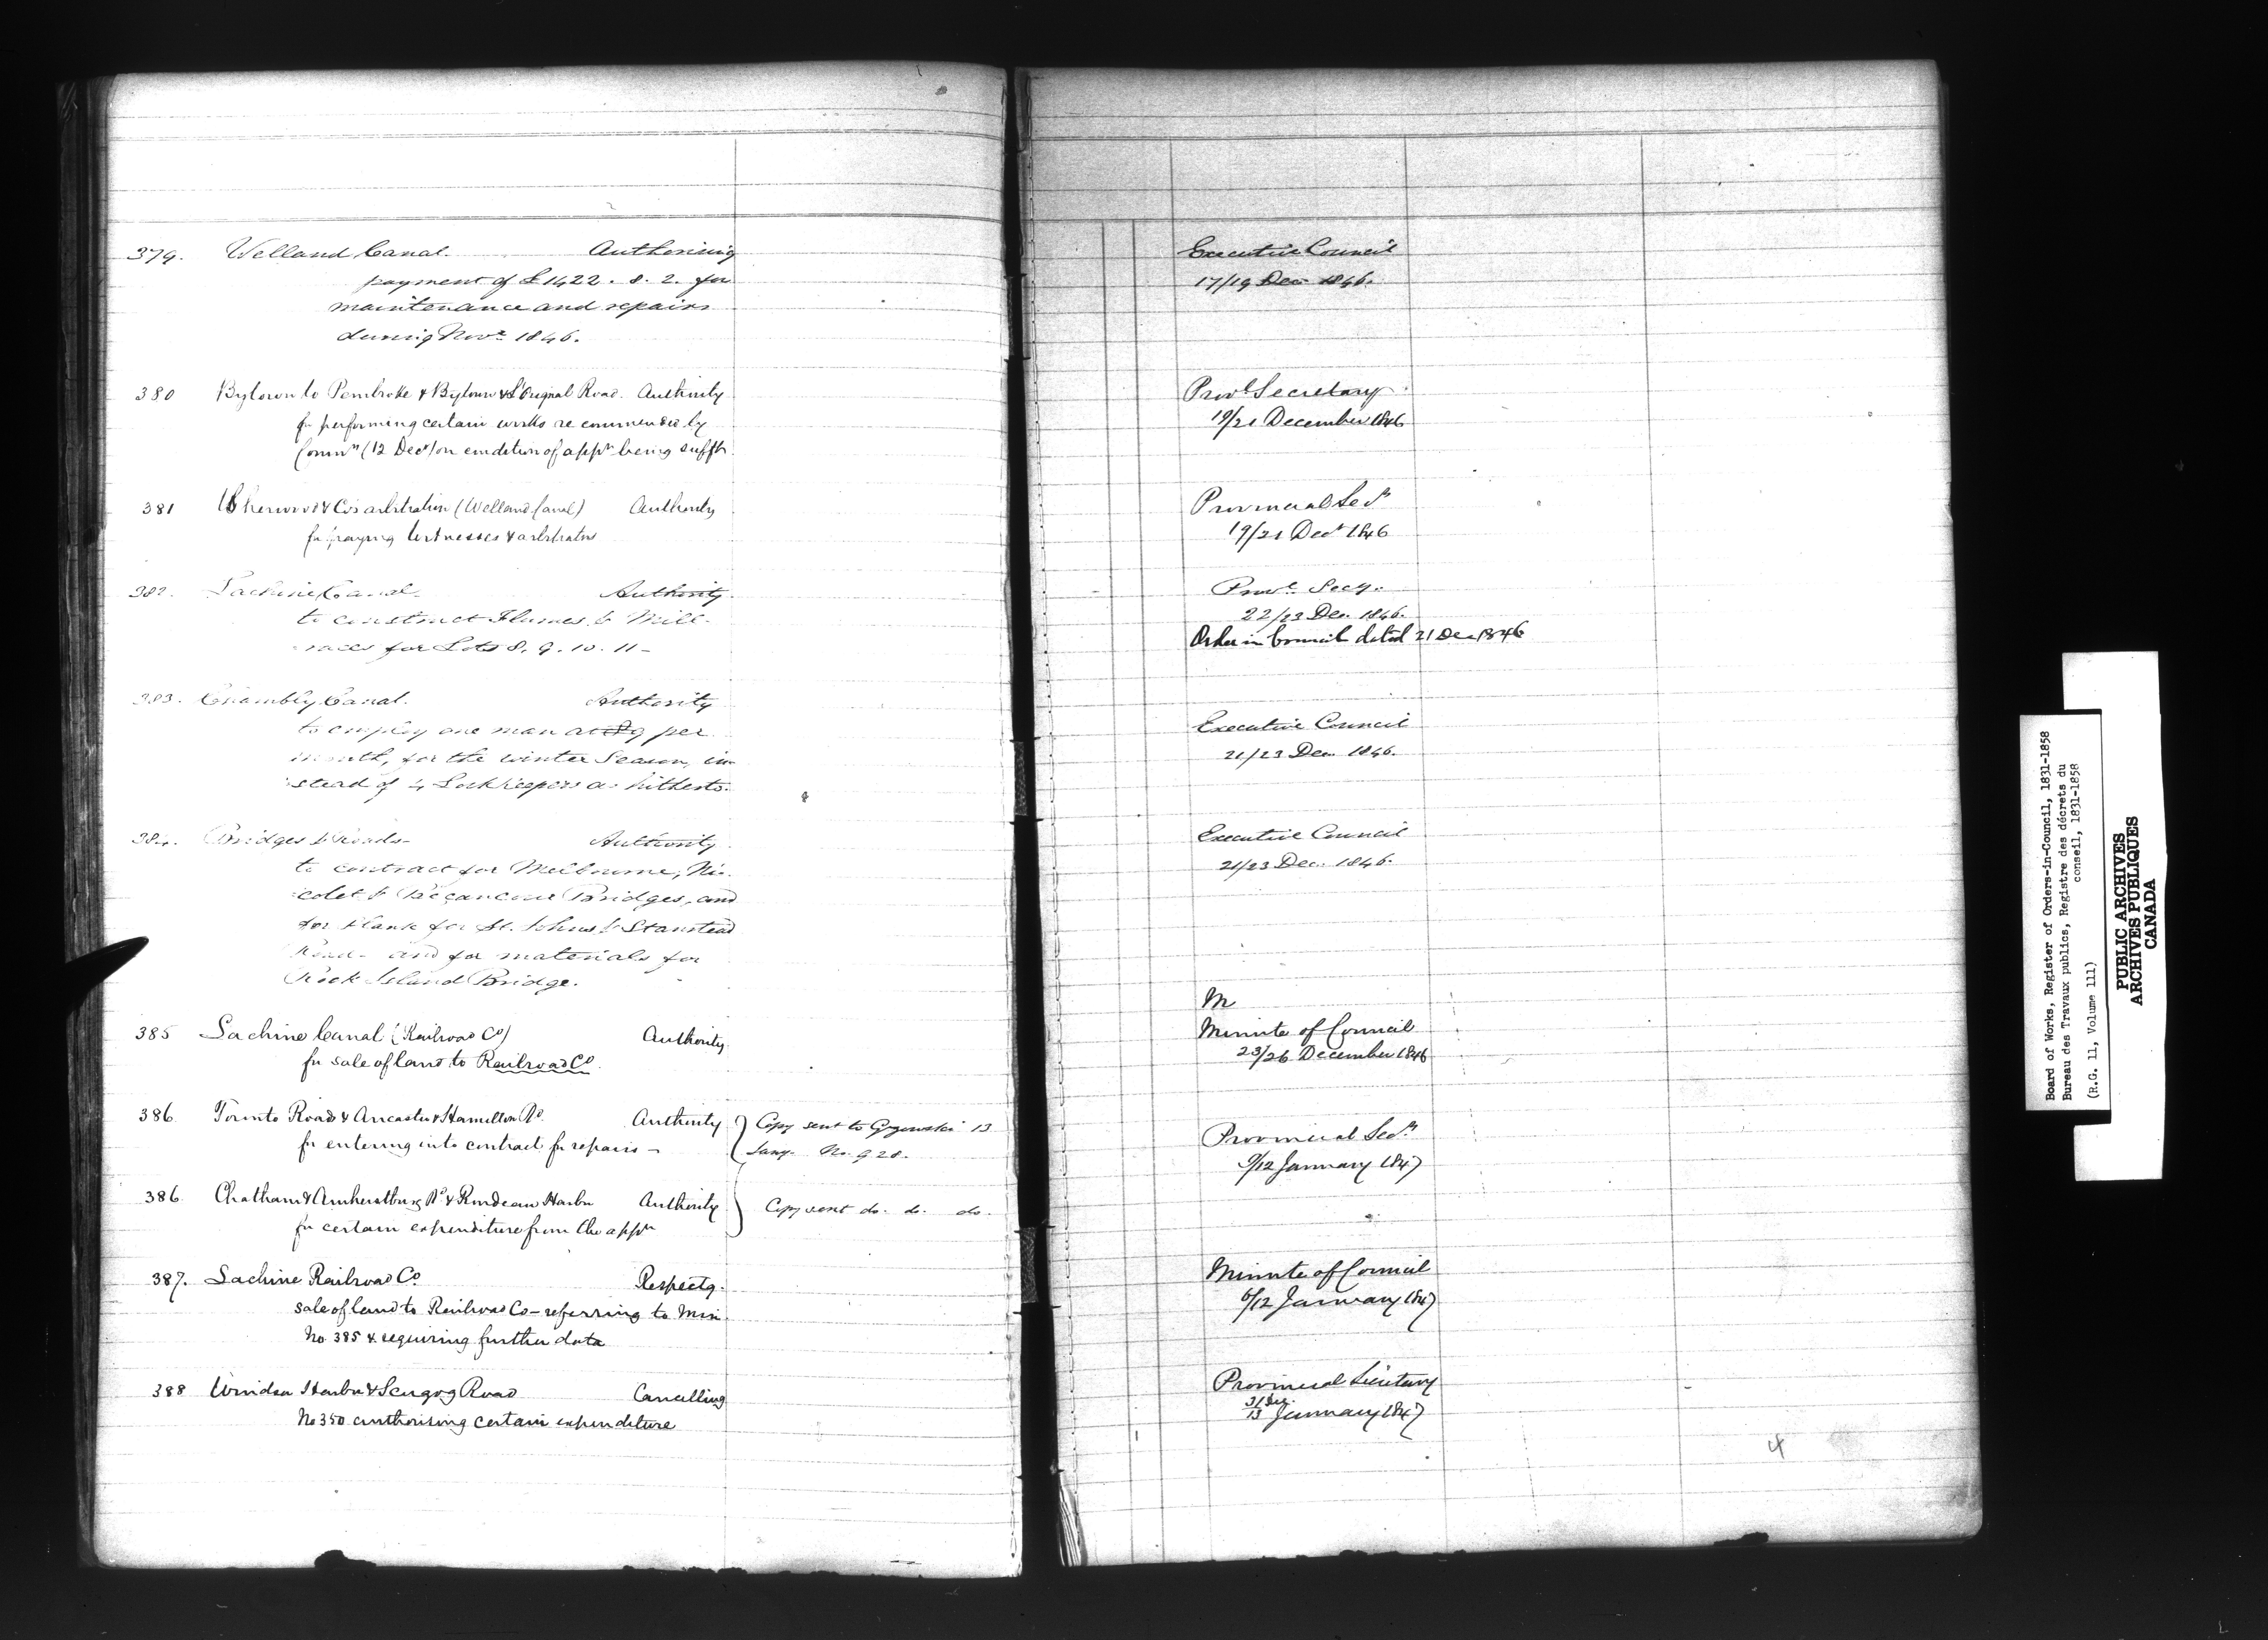 379. Welland Canal. Authorising
payment of £1422. 8. 2. for
maintenance and repairs
during Novr 1846.
Executive Council
17/19 Dec 1846.
380 Bytown to Pembroke & Bytown & L'Orignal Road. Authority
for performing certain works recommended by
Commrs (12 Decr) on condition of appn being sufft.
Provl Secretary
19/21 December 1846
381 Sherwood & Co's arbitration (Welland Canal) Authority
for paying Witnesses & arbitrators
Provincial Secy
19/21 Decr 1846
382. Lachine Canal. Authority
to construct Flumes & Mill-
races for Lots 8. 9. 10. 11-
Provl Secy.
22/23 Dec. 1846.
Order in Council dated 21 Dec 1846
383. Chambly Canal. Authority
to employ one man at per
month, for the winter Season, in-
stead of 4 Lockkeepers as hitherto.
Executive Council
21/23 Dec 1846.
384. Bridges & Roads- Authority
to contract for Melbourne, Ni-
colet & Becancour Bridges, and
for Plank for St. Johns & Stanstead
Road- and for materials for
Rock Island Bridge.
Executive Council
21/23 Dec. 1846.
M
385 Lachine Canal (Railroad Co) Authority
for sale of land to Railroad Co.
Minute of Council
23/26 December 1846
386 Toronto Road & Ancaster & Hamilton Do. Authority
for entering into contract for repairs -
Copy sent to Gzowski 13
Jany. No. 928.
Provincial Secy
9/12 January 1847
386 Chatham & Amherstburg Do & Rondeau Harbr Authority
for certain expenditure from the appn
Copy sent do. do. do.
387. Lachine Railroad Co Respectg.
sale of land to Railroad Co - referring to Min
No 385 & requiring further data
Minute of Council
6/12 January 1847
388 Windsor Harbr & Scugog Road Cancelling
No 350 authorising certain expenditure
Provincial Secretary
31 Dec.
13 January 1847
4
Board of Works, Register of Orders-in-Council, 1831-1858
Bureau des Travaux publics, Registre des décrets du
conseil, 1831-1858
(R.G. 11, Volume 111)
PUBLIC ARCHIVES
ARCHIVES PUBLIQUES
CANADA